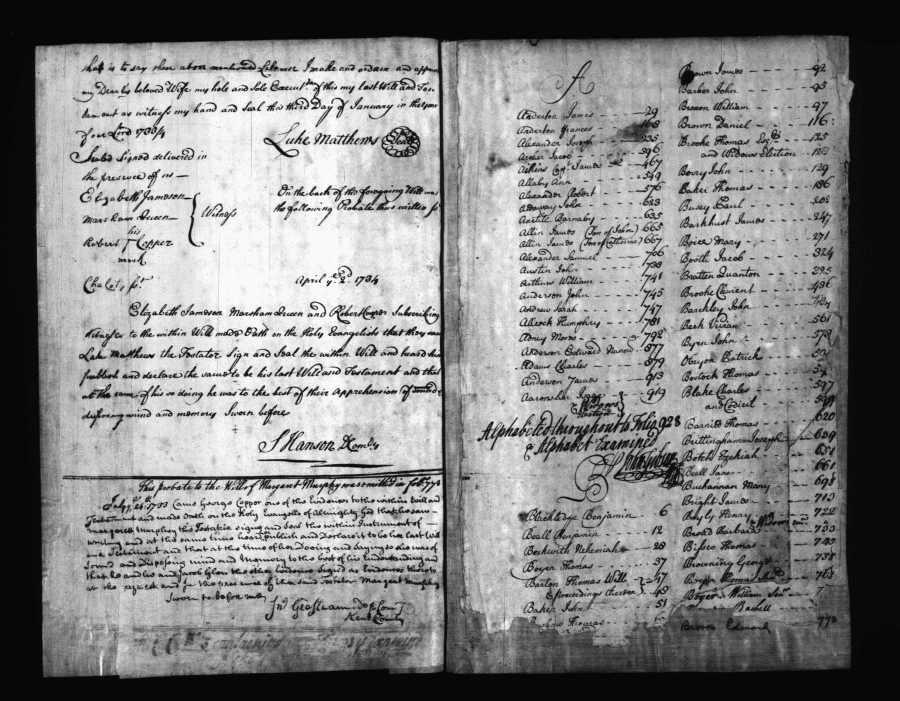 that is to say then above mentioned Labourer I make and ordain and appoint
my Dearly beloved Wife my hole and sole Execut.rx of this my last Will and Tes-
tament as witness my hand and Seal this third Day of January in the year
of our Lord 1733/4
Luke Matthews Seal
Sealed Signed delivered in
the presence of us —
Elizabeth Jameson
Marsham Queen
his
Robert T Copper
mark
Witness
On the back of the foregoing Will was
the following Probate thus written
April ye 2d 1734
Elizabeth Jameson Marsham Queen and Robert Copper Subscribing
witnesses to the within Will made Oath on the Holy Evangelists that they saw
Luke Matthews the Testator Sign and Seal the within Will and heard him
publish and declare the same to be his last Will and Testament and that
at the time of his so doing he was to the best of their apprehension of sound &
disposing mind and memory Sworn before
S Hanson
This probate to the Will of Margaret Murphy was omitted in fol. 770
July ye 24th 1733 Came George Copper one of the Evidences to the within Will and
Testament and made Oath on the Holy Evangells of Almighty God that he saw
Margaret Murphy the Testatrix signe and Seal the within Instrument of
writing and at the same time heard publish and Declare it to be her last Will
and Testament and that at the time of her Dooing and Saying so she was of
Sound and Disposing mind and Memory to the best of his understanding and
that he and Jacob Glen the other Evidence Signed as Evidences thereto
at the request and in the presence of the said Testator Margaret Murphy
Sworn to before me
Jn.o Gresham Dep Com
Kent County
A
Anderton James 29
Anderton Frances 168
Alexander Joseph 235
Archer Jacob 396
Atkins Cpt. James 467
Allaby Ann 549
Alexander Robert 576
Attaway John 623
Anctill Barnaby 635
Allin James (Son of John) 665
Allin James (Son of Catherine) 667
Alexander Samuel 706
Austin John 738
Arthurs William 741
Anderson John 745
Andrew Sarah 747
Allcock Humphry 781
Abney Moses 792
Anderson Edward 877
Adams Charles 879
Anderson James 913
Aaronslie 919
Alphabeted throughout to Folio 928
& Alphabet Examined
B
Blackledge Benjamin 6
Beall Benjamin 12
Beckwith Nehemiah 28
Boyer Thomas 37
Barton Thomas Will 47
& proceedings thereon 48
Baker John 51
Thomas
Brown James 92
Barber John 95
Brown William 97
Brown Daniel 116
Brooke Thomas Esq.r 125
and Widows Election
Berry John 129
Baker Thomas 186
Busey Paul 208
Barkhust James 247
Brice Mary 271
Booth Jacob 324
Bratten Quanton 395
Brooke Clement 436
Barckley John
Beck Vivian 561
Byrn John 573
Bryon Patrick
Bostock Thomas
Blake Charles 597
and Codicil 599
Barnitt Thomas 620
Brittingham Joseph 629
Botchs Ezekiah 651
Bell Jane 661
Buchannan Mary 698
Bright James 713
Bayly Henry 722
Broad Barbara 733
Bissee Thomas 740
Browning George 757
Boyer Thomas 763
Boyer William Sen.r
Rachell
Brooke Edmund 770